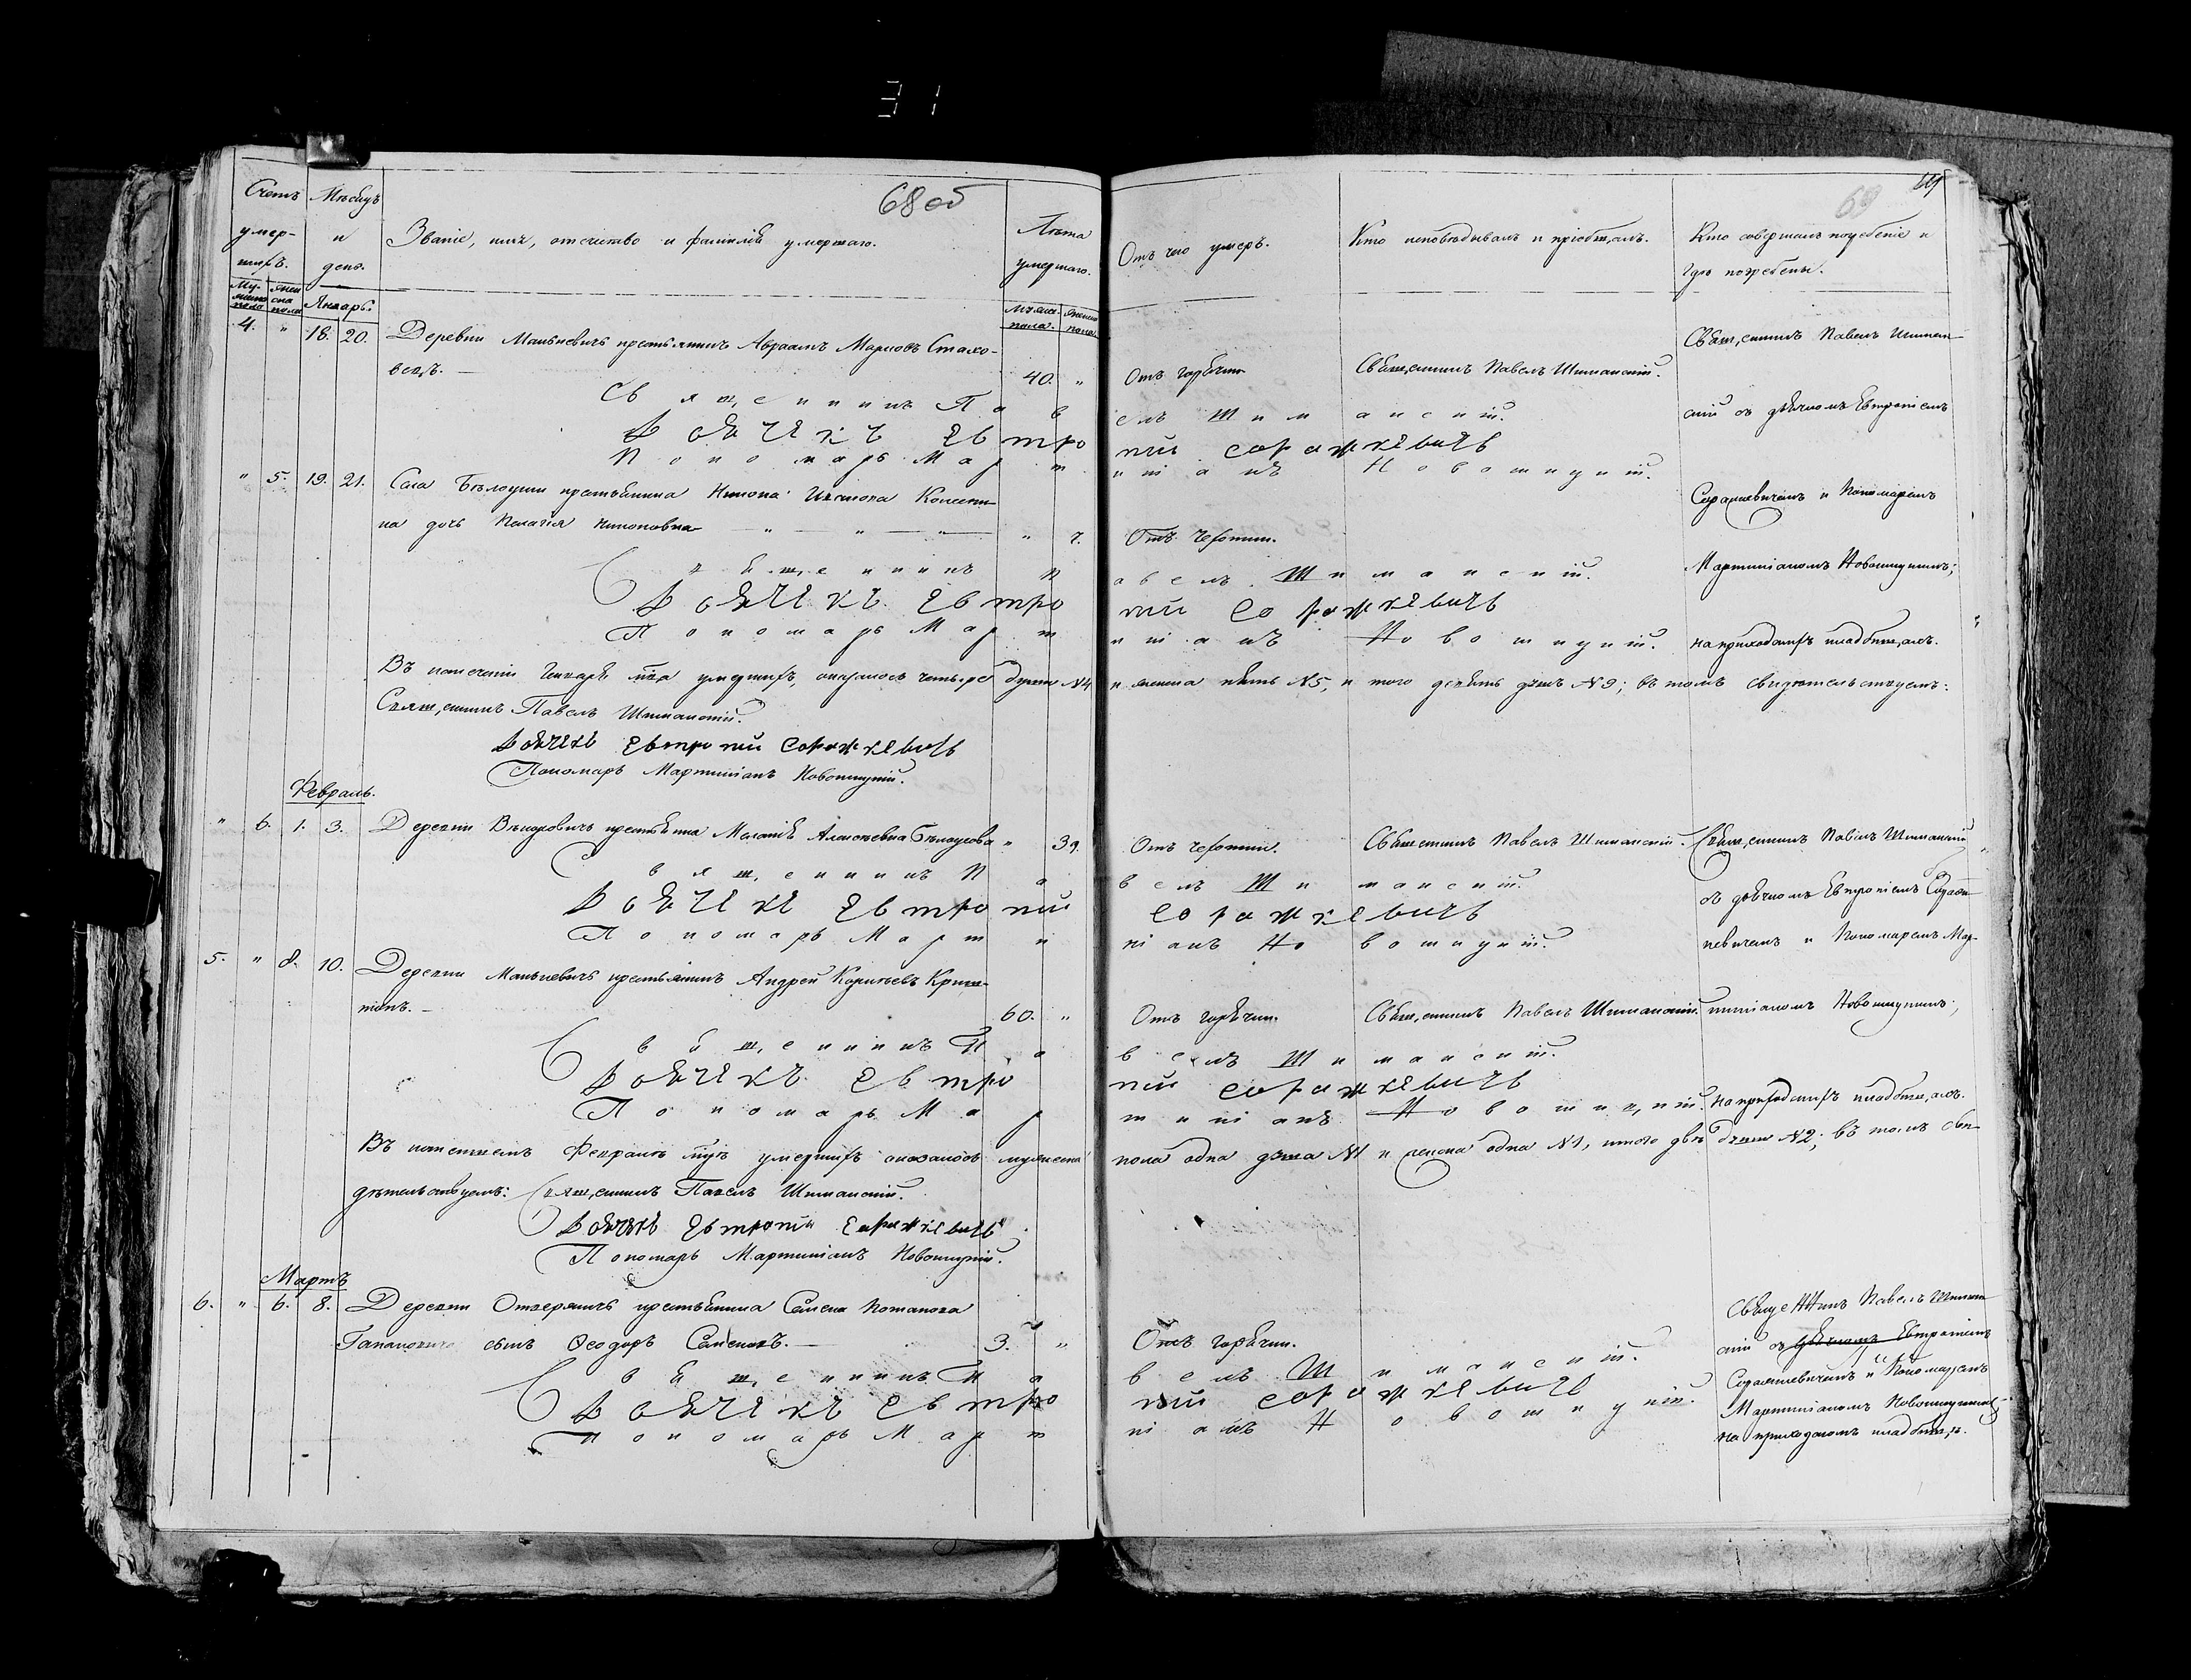 31
68об
69
Счетъ умер-
шихъ.
Му-
жеска
пола
Жен
ска
пола
Мѣсяцъ
и
день.
Январь.
Званіе, имя, отечество и фамилія умершаго.
Лѣта
умершаго.
Отъ чего умеръ.
Кто исповѣдывалъ и пріобщалъ.
Кто совершалъ погребеніе и
гдѣ погребены.
4. " 18. 20. Деревни Манькевичъ крестьянинъ Авраамъ Марковъ Стахо-
вецъ. — 40. " Отъ горячки Священникъ Павелъ Шиманскій.
Священникъ Павелъ Шиманскій.
Дьячекъ Евтропій Соражкевичъ
Пономарь Мартиніанъ Новошицкій.
Священникъ Павелъ Шиман-
скій съ дьячкомъ Евтропіемъ
Соражкевичемъ и Пономаремъ
Мартиніаномъ Новошицкимъ;
на приходскихъ кладбищахъ.
" 5. 19. 21. Села Бѣлоуши крестьянина Никона
на дочь Пелагія Никоновна — " — " — " " 7. Отъ чехотки.
Священникъ Павелъ Шиманскій.
Дьячекъ Евтропій Соражкевичъ
Пономарь Мартиніанъ Новошицкій.
Въ теченіи Генваря мца умершихъ, оказалось четыре души №4 и женска пять №5, и того девять душъ №9; въ томъ свидѣтельствуемъ:
Священникъ Павелъ Шиманскій.
Дьячекъ Евтропій Соражкевичъ
Пономарь Мартиніанъ Новошицкій.
Февраль.
" 6. 1. 3. Деревни крестьянка Меланія Алексѣевна Бѣлоусова " 39. Отъ чехотки. Священникъ Павелъ Шиманскій.
Священникъ Павелъ Шиманскій.
Дьячекъ Евтропій Соражкевичъ
Пономарь Мартиніанъ Новошицкій.
Священникъ Павелъ Шиманскій
съ дьячкомъ Евтропіемъ Сораж-
кевичемъ и Пономаремъ Мар-
тиніаномъ Новошицкимъ;
на приходскихъ кладбищахъ.
5. " 8. 10. Деревни Манькевичъ крестьянинъ Андрей Корнѣевъ
60. " Отъ горячки. Священникъ Павелъ Шиманскій
Священникъ Павелъ Шиманскій.
Дьячекъ Евтропій Соражкевичъ
Пономарь Мартиніанъ Новошицкій.
Въ Февралѣ мцѣ умершихъ оказалось мужеска пола одна душа №1 и женска одна №1, итого двѣ души №2; въ томъ сви-
дѣтельствуемъ: Священникъ Павелъ Шиманскій.
Дьячекъ Евтропій Соражкевичъ
Пономарь Мартиніанъ Новошицкій.
Мартъ
6. " 6. 8. Деревни Отвержичъ крестьянина Семена Потапова
Гапановича сынъ Ѳеодоръ Семеновъ. — 3. " Отъ горячки.
Священникъ Павелъ Шиманскій.
Дьячекъ Евтропій Соражкевичъ
Пономарь Мартиніанъ Новошицкій.
Священникъ Павелъ Шиман-
скій съ дьячкомъ Евтропіемъ
Соражкевичемъ и Пономаремъ
Мартиніаномъ Новошицкимъ
на приходскомъ кладбищѣ.